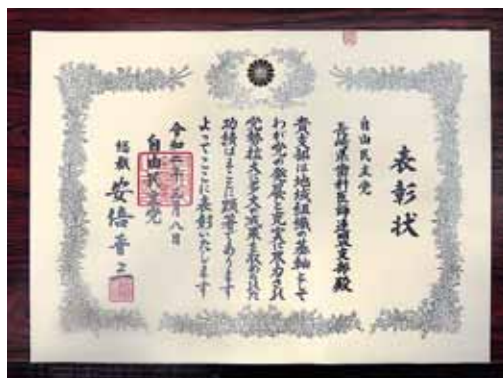 表彰状
自由民主党
長崎県歯科医師連盟支部殿
貴支部は地域組織の基軸として
わが党の発展と充実に尽力され
党勢拡大に多大な成果を収められた
功績はまことに顕著であります
よってここに表彰いたします
令和二年三月八日
自由民主党
総裁 安倍晋三